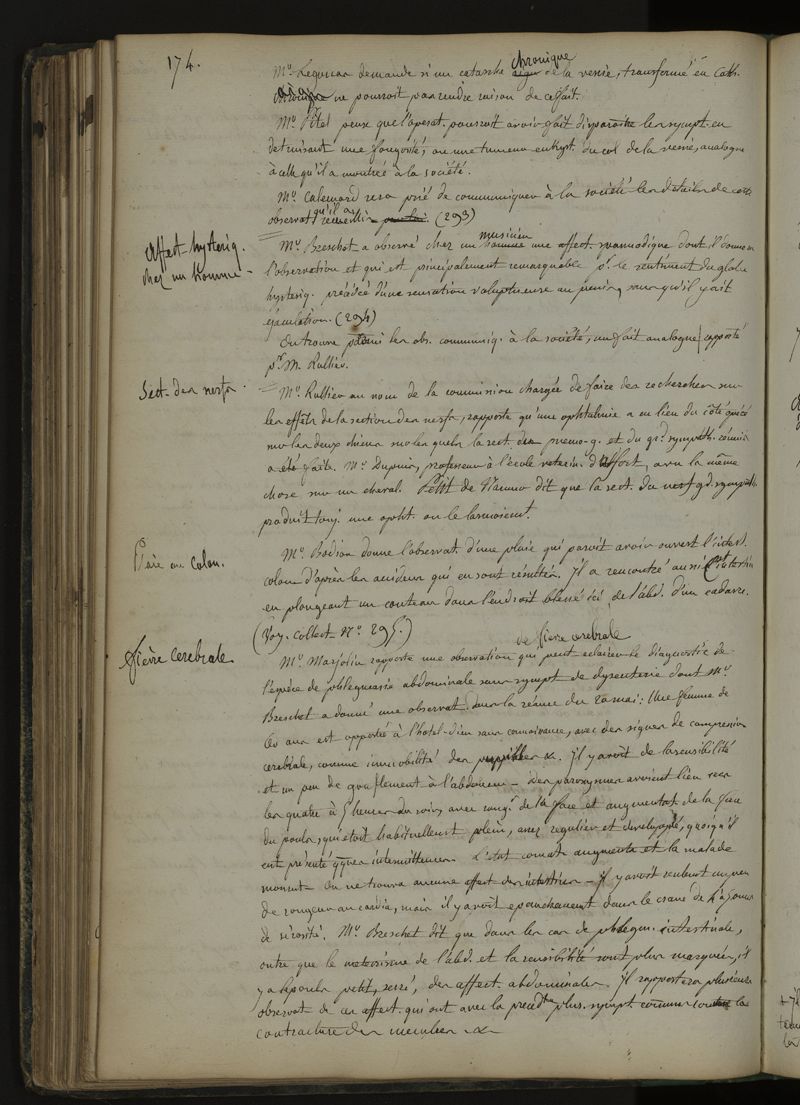 174.
Mr. demande si un catarrhe chronique de la vessie, transformé en Cath.
ne pourroit pas rendre raison de ce fait.
Mr. pense que l'operat. pourroit avoir fait disparaitre les sympt. en
detruisant une fongosité, ou une tumeur enkyst. du col de la vessie, analogue
à celle qu'il a montrée à la société.
Mr. sera prié de communiquer à la société les details de cette
observat. qu'il a recueillie (293)
Affect. hysteriq.
chez un homme -
Mr. Breschet a observé chez un musicien une affect. spasmodique dont il donne
l'observation et qui est principalement remarquable pr. le sentiment du globe
hysteriq. précédé d'une sensation voluptueuse au penis, sans qu'il y ait
ejaculation. (294)
On trouve parmi les obs. communiq. à la société, un fait analogue rapporté
pr. M. Rullier.
Sect. des nerfs.
Mr. Rullier au nom de la commission chargée de faire des recherches sur
les effets de la section des nerfs, rapporte qu'une ophtalmie a eu lieu du côté opéré
sur les deux chiens sur lesquels la sect. des pneumo-g. et du gd. sympath. réunis
a été faite. Mr. Dupuis, professeur à l'école veterin. d'Alfort, a vu la même
chose sur un cheval. Petit de Namur dit que la sect. du nerf gd. sympath.
produit touj. une opht. ou le larmoiemt.
Plaie au Colon.
Mr. donne l'observat. d'une plaie qui paroit avoir ouvert l'intest.
colon d'après les accidens qui en sont résultés. Il a rencontré aussi cet intestin
en plongeant un couteau dans l'endroit blessé ici de l'abd. d'un cadavre.
(Voy. Collect. No. 295.)
Fièvre cerebrale.
Mr. Marjolin rapporte une observation de fievre cerebrale qui peut eclairer le diagnostic de
l'espèce de phlegmasie abdominale sans sympt. de dysenterie dont Mr.
Breschet a donné une observat. dans la séance du 20 mai: Une femme de
60 ans est apportée à l'hotel-Dieu sans connoissance, avec des signes de compression
cerebrale, comme immobilité des pupilles &. Il y avoit de la sensibilité
et un peu de gonflement à l'abdomen - Des paroxysmes avoient lieu vers
les quatre à 5 heures du soir, avec roug.r de la face et augmentat. de la force
du pouls, qui etoit habituellemt plein, assez regulier et developpé, quoiqu'il
eut présenté qques intermittences. L'etat comat. augmente et la malade
mourut. On ne trouva aucune affect. des intestins - il y avoit seulemt un peu
de rougeur au cardia, mais il y avoit epanchement dans le crane de
de sérosité. Mr. Breschet dit que dans les cas de phlegm. intestinale,
outre que le meteorisme de l'abd. et la sensibilité sont plus marqués, il
y a le pouls petit, serré, des affect. abdominales. Il rapportera plusieurs
observat. de ces affect. qui ont avec la precedte plus. sympt. communs comme la
contracture des membres &